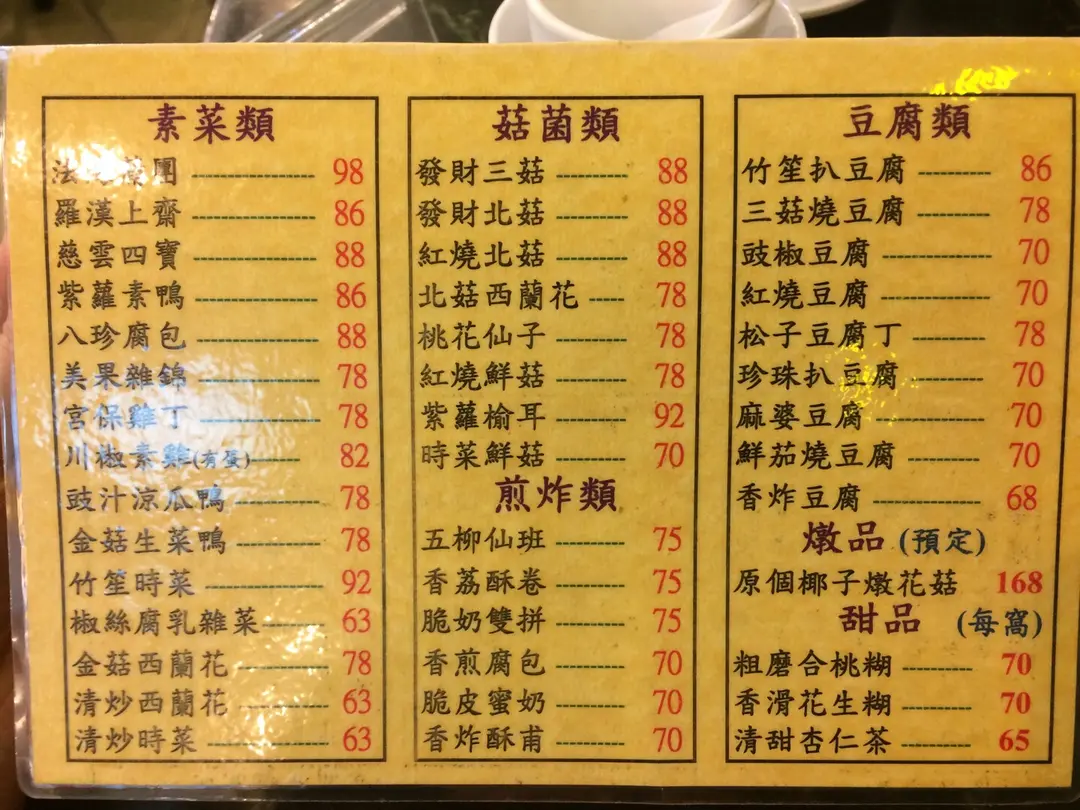 素菜類
法 團 98
羅漢上齋 86
慈雲四寶 88
紫蘿素鴨 86
八珍腐包 88
美果雜錦 78
宮保雞丁 78
川椒素雞(有蛋) 82
豉汁涼瓜鴨 78
金菇生菜鴨 78
竹笙時菜 92
椒絲腐乳雜菜 63
金菇西蘭花 78
清炒西蘭花 63
清炒時菜 63
菇菌類
發財三菇 88
發財北菇 88
紅燒北菇 88
北菇西蘭花 78
桃花仙子 78
紅燒鮮菇 78
紫蘿榆耳 92
時菜鮮菇 70
煎炸類
五柳仙班 75
香荔酥卷 75
脆奶雙拼 75
香煎腐包 70
脆皮蜜奶 70
香炸酥甫 70
豆腐類
竹笙扒豆腐 86
三菇燒豆腐 78
豉椒豆腐 70
紅燒豆腐 70
松子豆腐丁 78
珍珠扒豆腐 70
麻婆豆腐 70
鮮茄燒豆腐 70
香炸豆腐 68
燉品 (預定)
原個椰子燉花菇 168
甜品 (每窩)
粗磨合桃糊 70
香滑花生糊 70
清甜杏仁茶 65